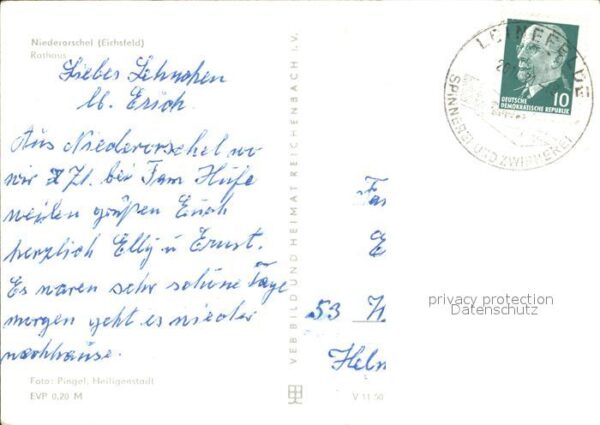 Niederorschel (Eichsfeld)
Rathaus
Liebes Lehnchen
u. Erich.
Aus Niederorschel wo
wir z. Zt. bei Fam Hufe
weilen grüßen Euch
herzlich Elly u Ernst.
Es waren sehr schöne Tage
morgen geht es wieder
nachhause.
Foto: Pingel, Heiligenstadt
EVP 0,20 M
VEB BILD UND HEIMAT REICHENBACH I. V.
V 11 50
Fa
E
53 W
Heln
LEINEFELDE
SPINNEREI UND ZWIRNEREI
10
DEUTSCHE
DEMOKRATISCHE REPUBLIK
privacy protection
Datenschutz